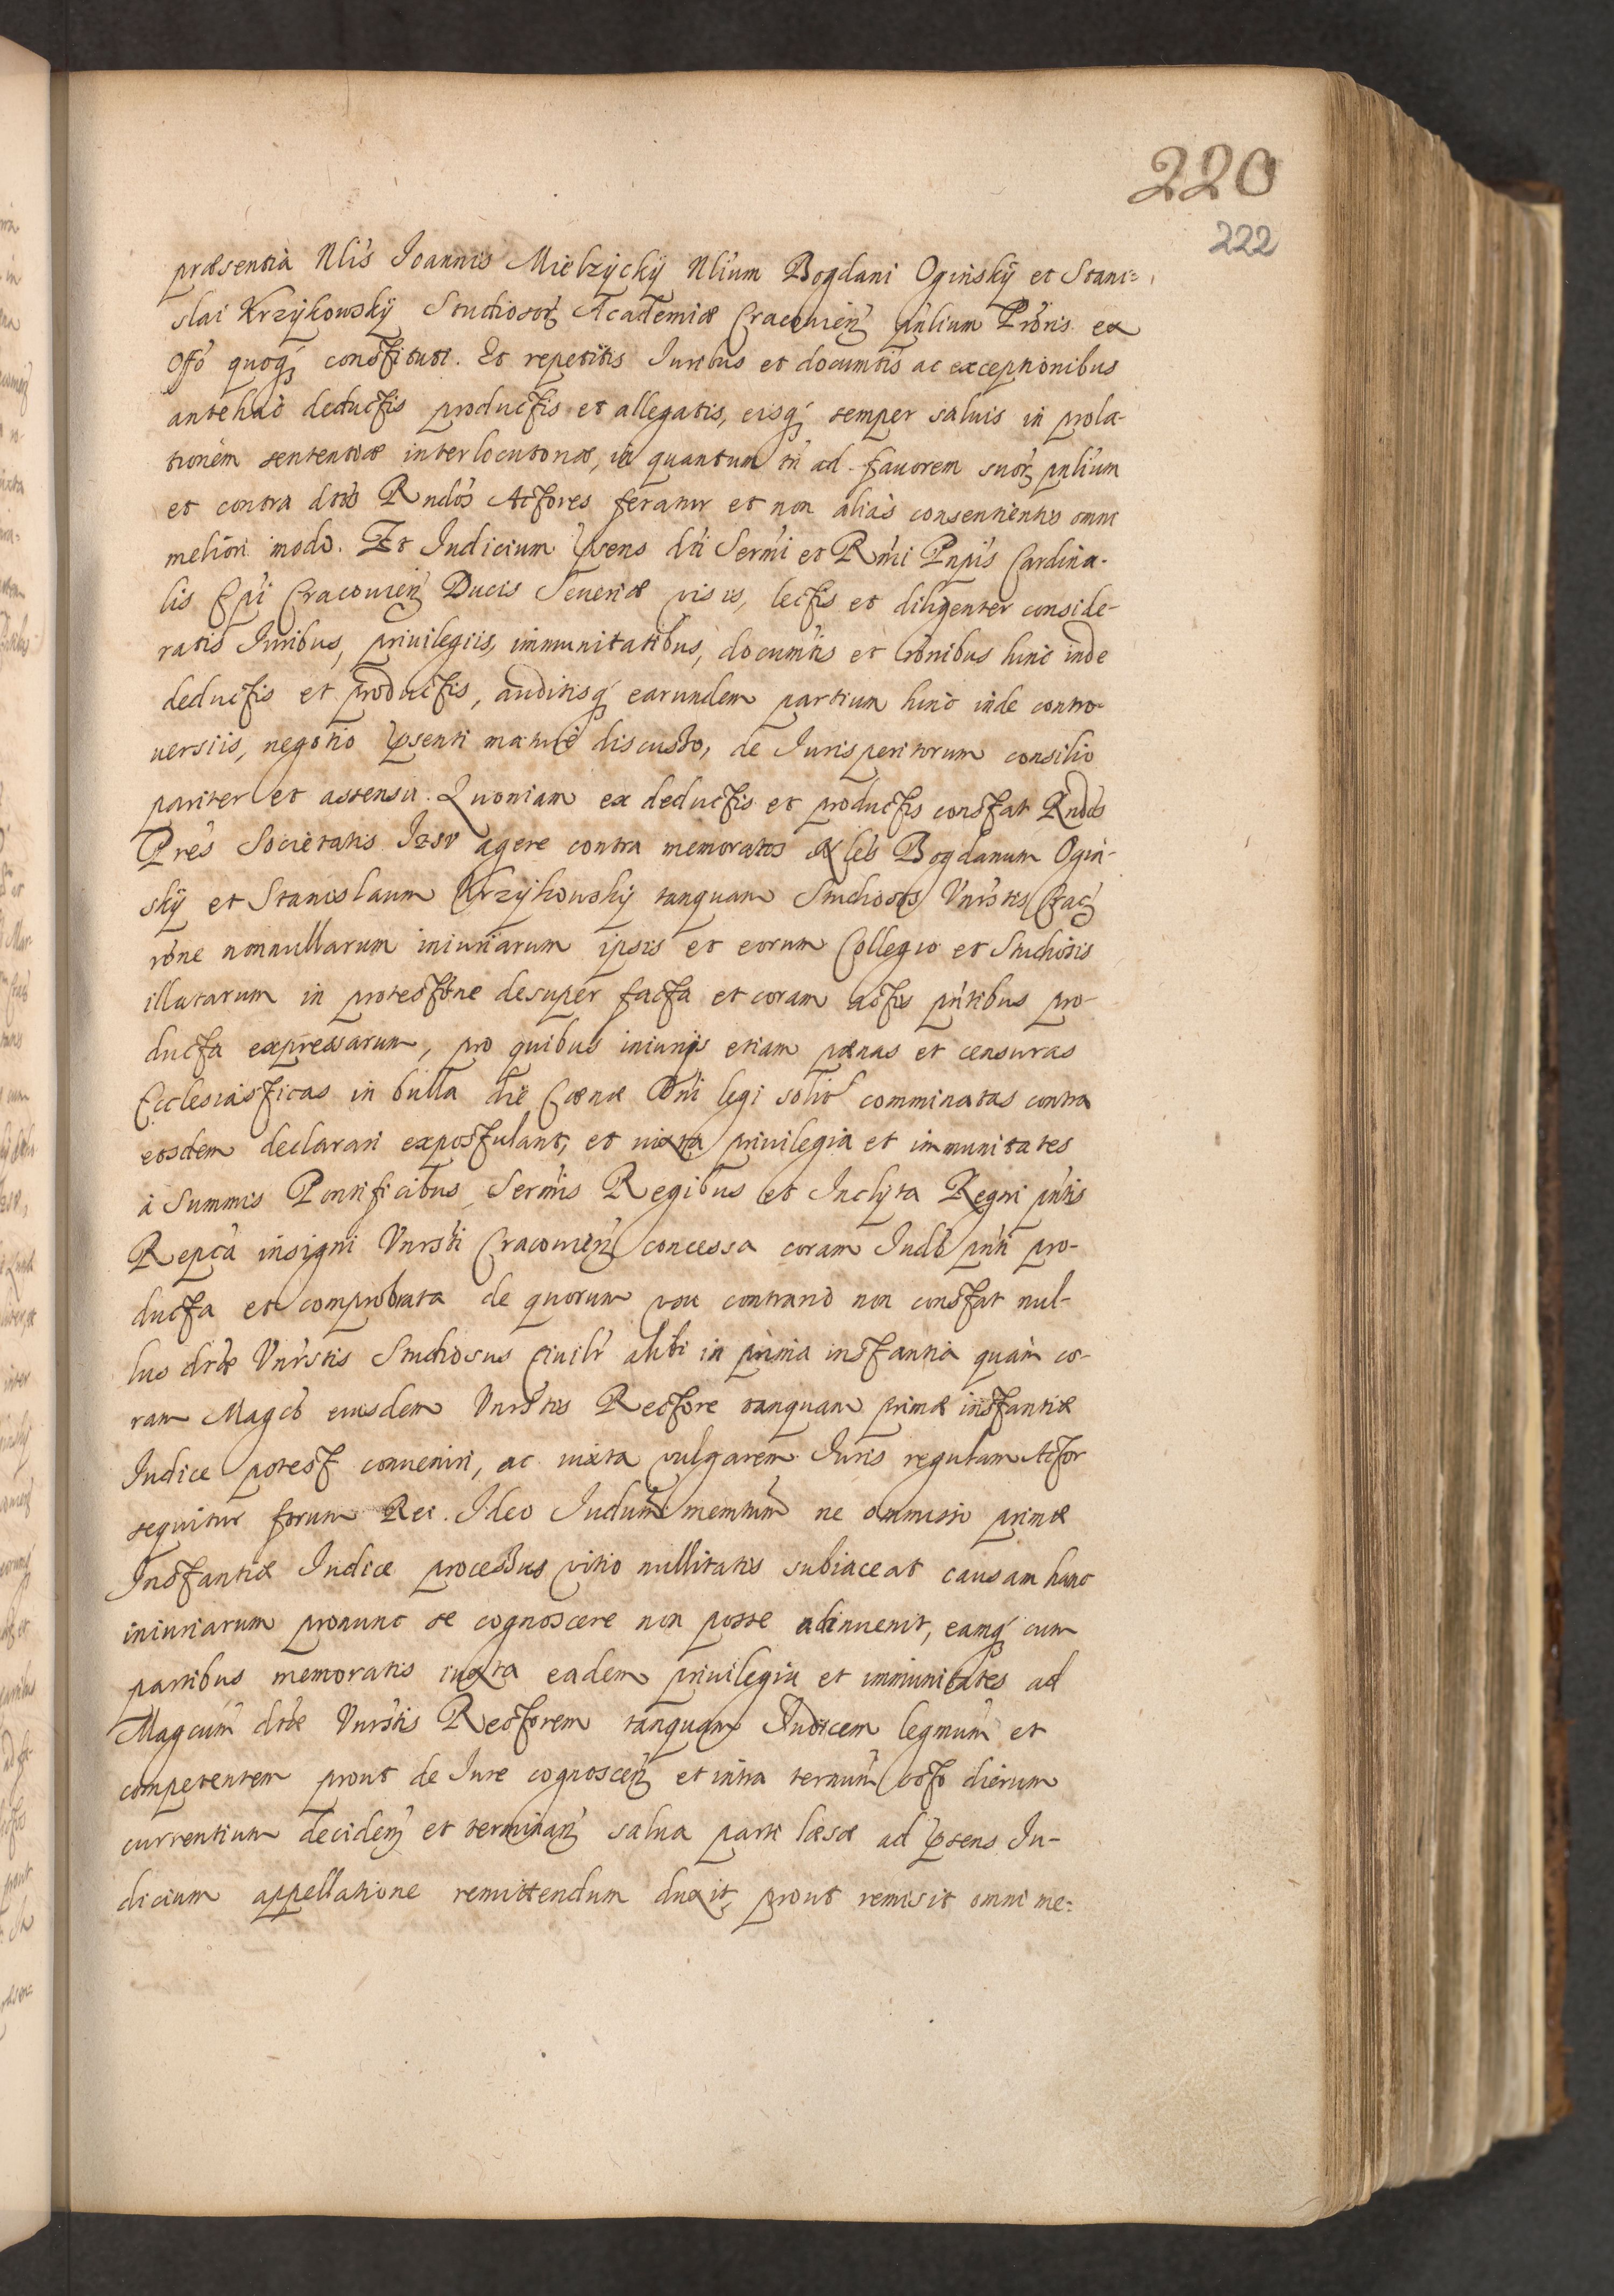 220
222
præsentià Nlis Joannis Mielzÿckÿ Nlium Bogdani Oginskÿ et Stani=
slai Krzÿkowskÿ Studiosorꝫ Academiæ Cracouienꝫ pnlium Prōris ex
offo quoqꝫ constituti. Et repetitis Juribus et documtis ac exceptionibus
antehac deductis productis et allegatis, eisqꝫ semper saluis in prola-
tionem sententiæ interlocutoriæ, in quantum tn ad fauorem suorꝫ pnlium
et contra dtos Rndos Actores feratur et non aliàs consentientis omni
meliori modo. Et Judicium pͤsens dni Sermi et Rmi Pnpis Cardina-
lis Epi Cracouienꝫ Ducis Seueriæ visis, lectis et diligenter conside-
ratis Juribus, priuilegiis, immunitatibus, documtis et rōnibus hinc inde
deductis et productis, auditisqꝫ earundem partium hinc inde contro-
uersiis, negotio pͤsenti maturè discusso, de Jurisperitorum consilio
pariter et assensu. Quoniam ex deductis et productis constat Rndos
Pres Societatis Jesv agere contra memoratos Nles Bogdanum Ogin-
skÿ et Stanislaum Krzÿkowskÿ tanquam Studiosos Vnrstis Cracꝫ
rōne nonnullarum iniuriarum ipsis et eorum Collegio et Studiosis
illatarum in protestōne desuper facta et coram actis pntibus pro-
ducta expressarum, pro quibus iniurijs etiam pænas et censuras
Ecclesiasticas in bulla die Cœnæ Dni legi solit comminatas contra
eosdem declarari expostulant, et iuxta priuilegia et immunitates
à Summis Pontificibus Sermis Regibus et Inclÿta Regni pntis
Repca insigni Vnrsti Cracouienꝫ concessa coram Judo pnti pro-
ducta et comprobata de quorum vsu contrario non constat nul-
lus dtæ Vnrstis Studiosus Ciuilr alibi in prima instantia quàm co-
ram Magco eiusdem Vnrstis Rectore tanquam primæ instantiæ
Judice potest conueniri, ac iuxta vulgarem Juris regulam Actor
sequitur forum Rei. Ideo Judium memtum ne ommisso primæ
Instantiæ Judice processus vitio nullitatis subiaceat causam hanc
iniuriarum pronunc se cognoscere non posse adinuenit, eamqꝫ cum
partibus memoratis iuxta eadem priuilegia et immunitates ad
Magcum dtæ Vnrstis Rectorem tanquam Judicem legmum et
competentem prout de Jure cognoscenꝫ et intra termum octo dierum
currentium decidenꝫ et terminanꝫ salua parti læsæ ad pͤsens Ju-
dicium appellatione remittendum duxit, prout remisit omni me=